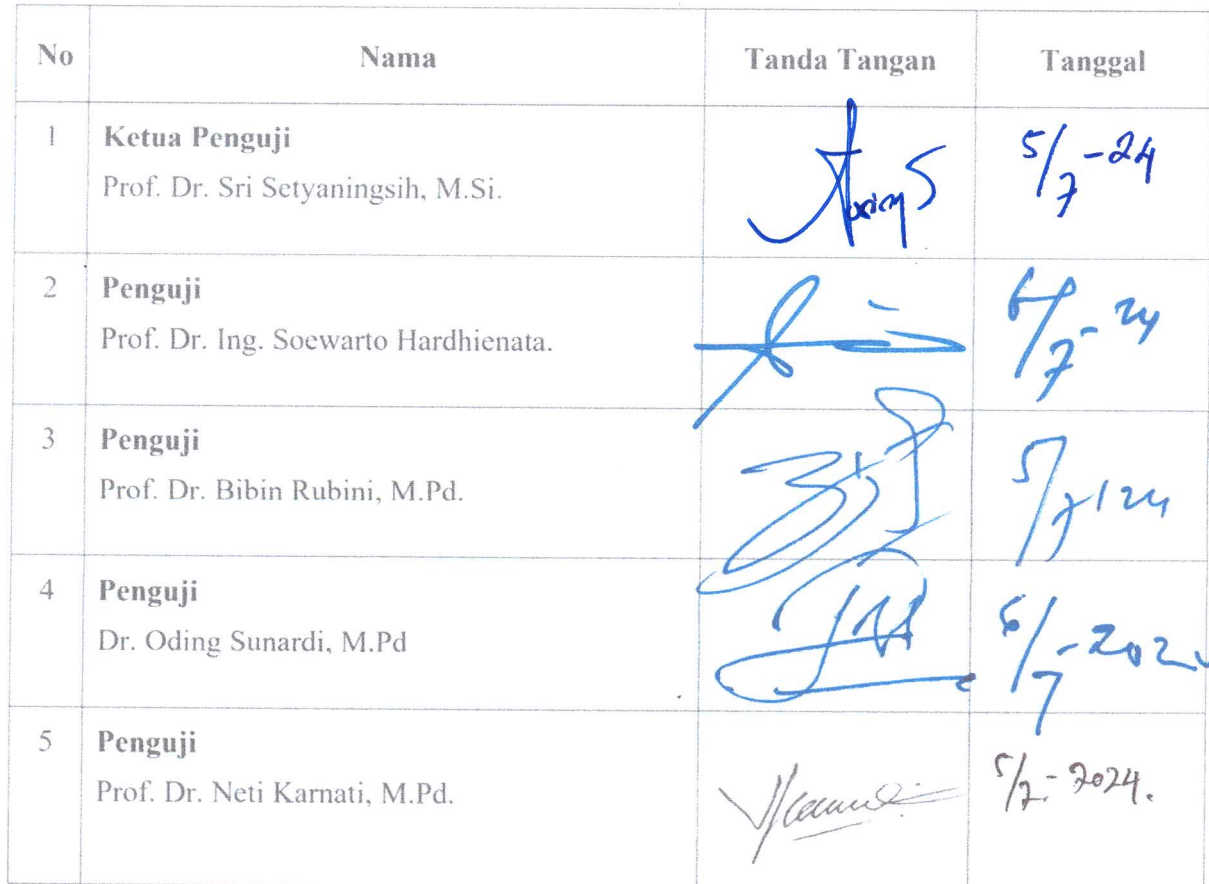 No Nama Tanda Tangan Tanggal
1 Ketua Penguji
Prof. Dr. Sri Setyaningsih, M.Si.
5/7-24
2 Penguji
Prof. Dr. Ing. Soewarto Hardhienata.
/7-24
3 Penguji
Prof. Dr. Bibin Rubini, M.Pd.
5/7/24
4 Penguji
Dr. Oding Sunardi, M.Pd
/7-202
5 Penguji
Prof. Dr. Neti Karnati, M.Pd.
5/7-2024.